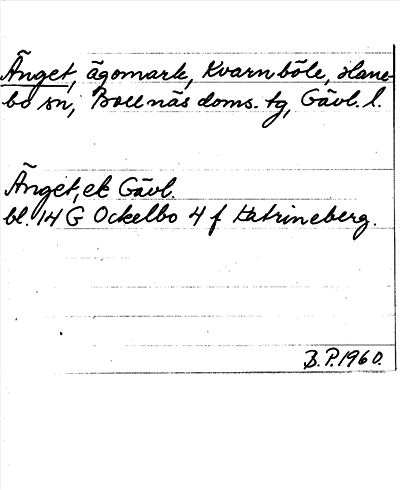 Änget, ägomark, Kvarnböle, Hane-
bo sn, Bollnäs doms. tg, Gävl. l.
Änget, ek Gävl.
bl. 14 G Ockelbo 4 f Katrineberg.
B.P. 1960.